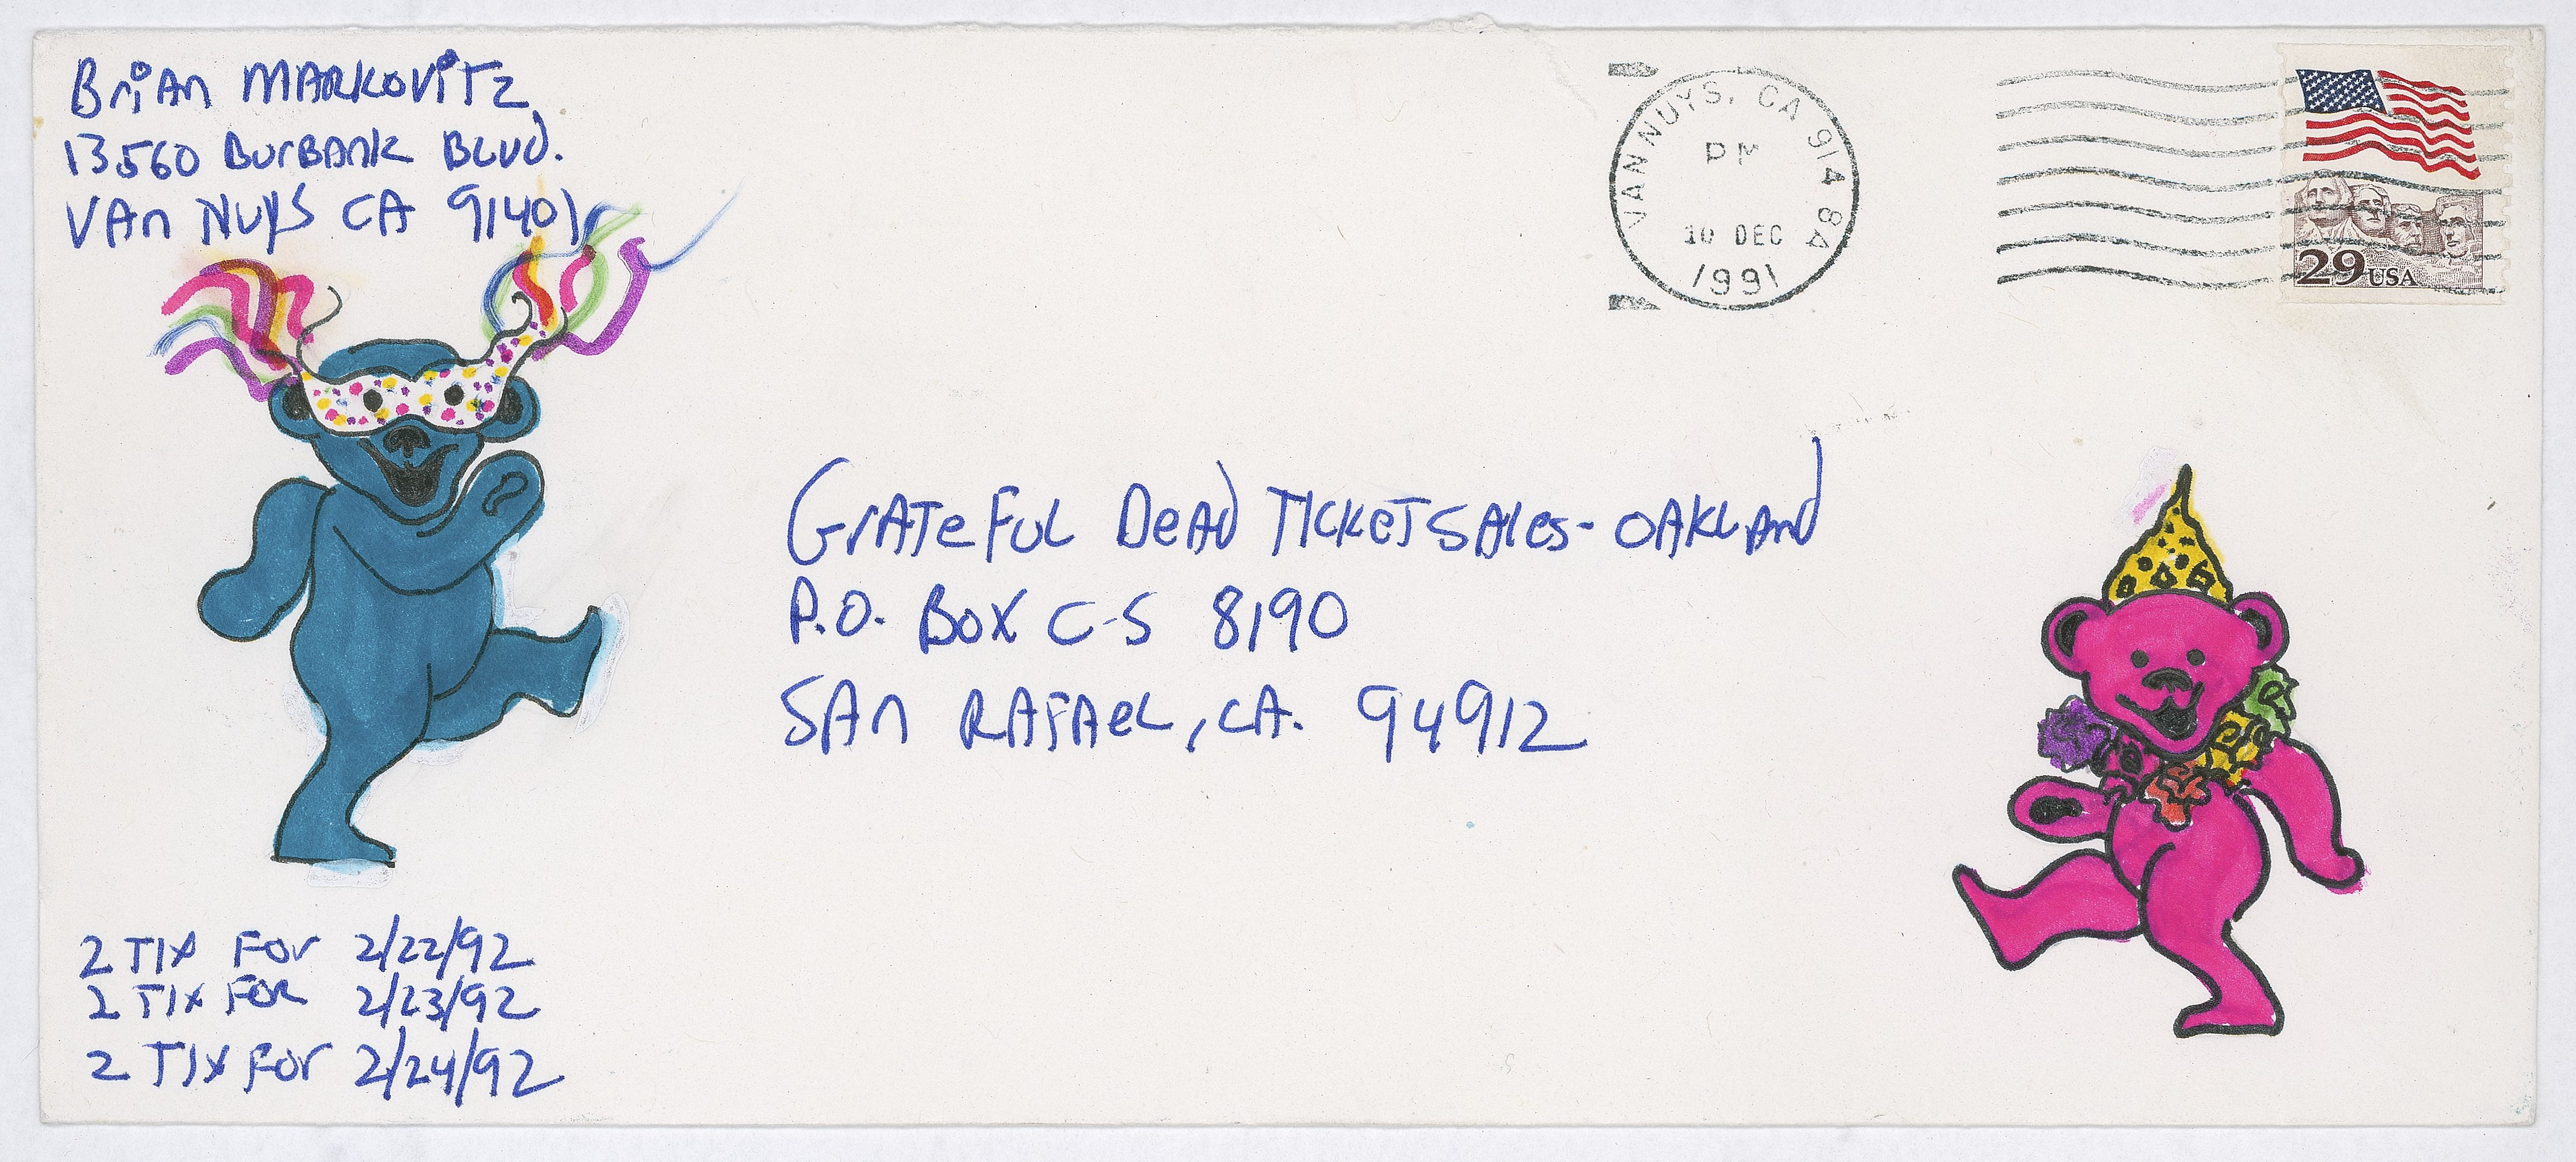 Brian Markovitz
13560 Burbank Blvd.
Van Nuys CA 91401
VAN NUYS, CA 914 84
PM
10 DEC
1991
29 USA
Grateful Dead Ticket Sales - Oakland
P.O. Box C-S 8190
San Rafael, CA. 94912
2 Tix For 2/22/92
2 Tix For 2/23/92
2 Tix For 2/24/92